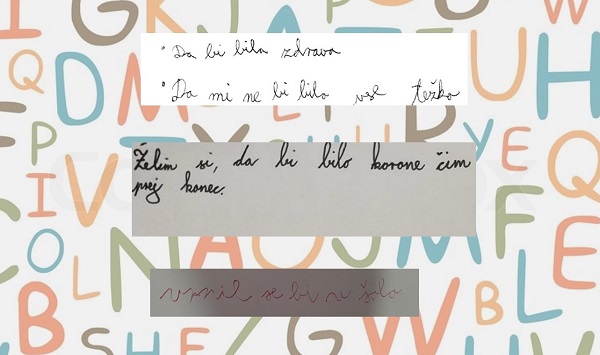 ° Da bi bila zdrava
° Da mi ne bi bilo vse težko
Želim si, da bi bilo korone čim
prej konec.
vrnil se bi v šolo